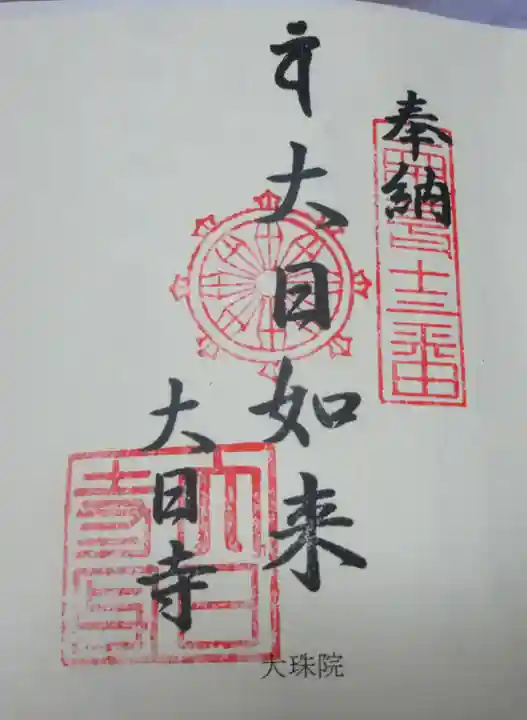 奉納
大日如来
大日寺
大珠院